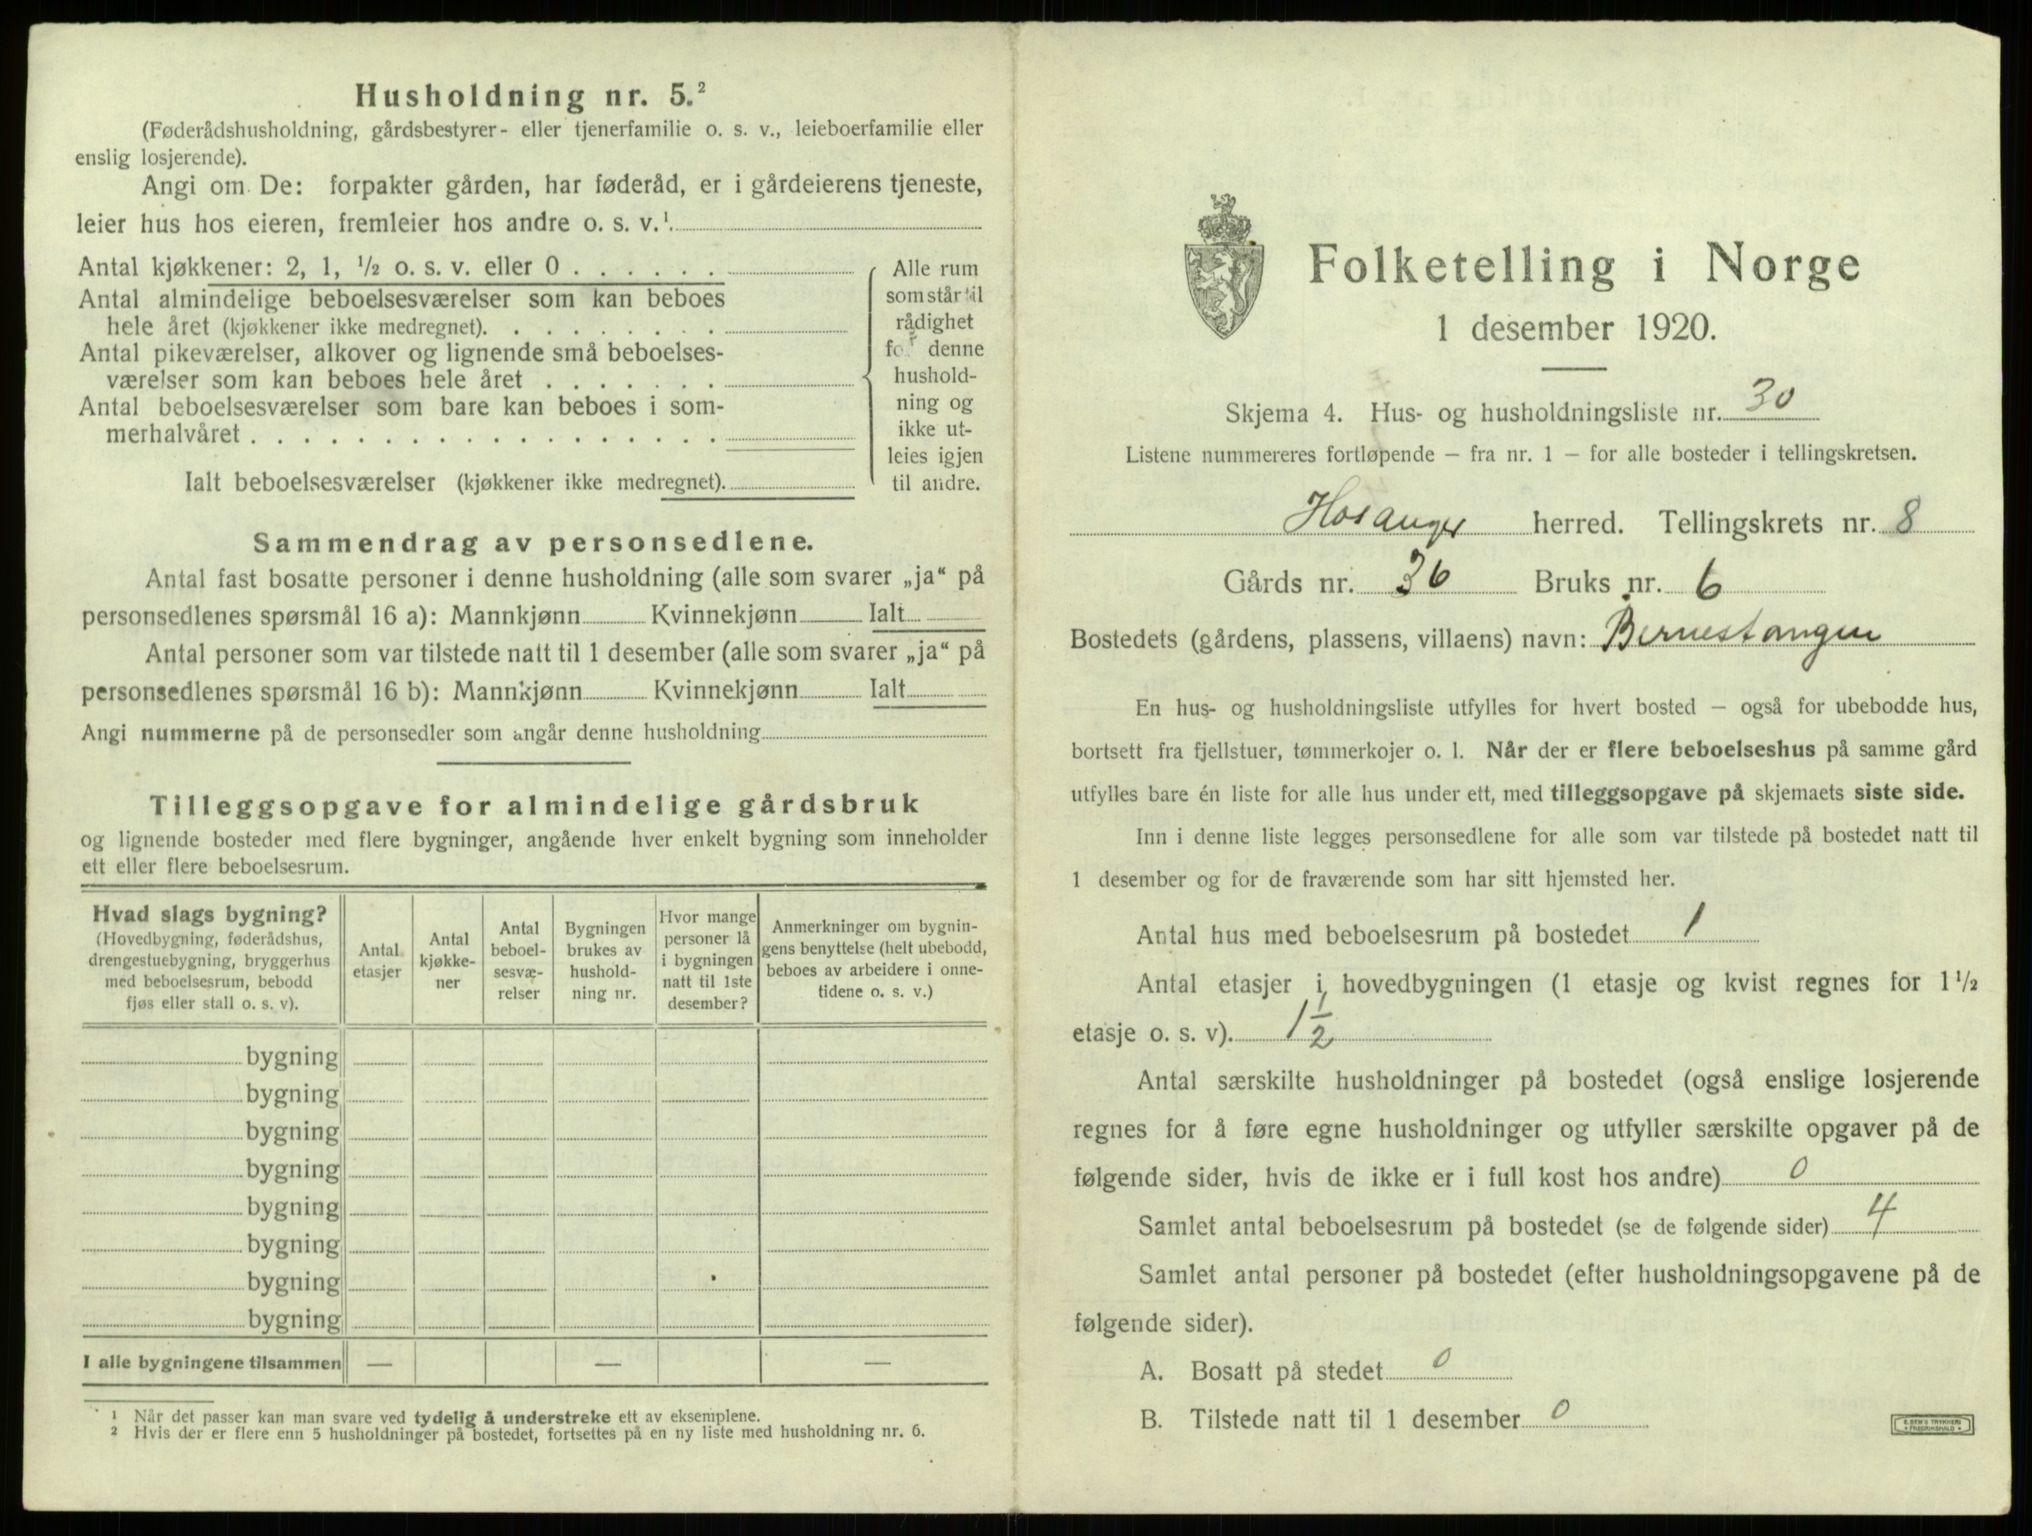 Husholdning nr. 5.²
(Føderådshusholdning, gårdsbestyrer- eller tjenerfamilie o. s. v., leieboerfamilie eller
enslig losjerende).
Angi om De: forpakter gården, har føderåd, er i gårdeierens tjeneste,
leier hus hos eieren, fremleier hos andre o. s. v.¹
Antal kjøkkener: 2, 1, ½ o. s. v. eller 0 . . . . . .
Antal almindelige beboelsesværelser som kan beboes
hele året (kjøkkener ikke medregnet). . . . . . . . .
Antal pikeværelser, alkover og lignende små beboelses-
værelser som kan beboes hele året . . . . . . .
Antal beboelsesværelser som bare kan beboes i som-
merhalvåret . . . . . . . . . . . . . . . . . .
Ialt beboelsesværelser (kjøkkener ikke medregnet).
Alle rum
som står til
rådighet
for denne
hushold-
ning og
ikke ut-
leies igjen
til andre.
Sammendrag av personsedlene.
Antal fast bosatte personer i denne husholdning (alle som svarer „ja“ på
personsedlenes spørsmål 16 a): Mannkjønn Kvinnekjønn Ialt
Antal personer som var tilstede natt til 1 desember (alle som svarer „ja“ på
personsedlenes spørsmål 16 b): Mannkjønn Kvinnekjønn Ialt
Angi nummerne på de personsedler som angår denne husholdning
Tilleggsopgave for almindelige gårdsbruk
og lignende bosteder med flere bygninger, angående hver enkelt bygning som inneholder
ett eller flere beboelsesrum.
Hvad slags bygning?
(Hovedbygning, føderådshus,
drengestuebygning, bryggerhus
med beboelsesrum, bebodd
fjøs eller stall o. s. v).
Antal
etasjer
Antal
kjøkke-
ner
Antal
beboel-
sesvæ-
relser
Bygningen
brukes av
hushold-
ning nr.
Hvor mange
personer lå
i bygningen
natt til 1ste
desember?
Anmerkninger om bygnin-
gens benyttelse (helt ubebodd,
beboes av arbeidere i onne-
tidene o. s. v.)
bygning
bygning
bygning
bygning
bygning
bygning
bygning
bygning
I alle bygningene tilsammen — — —
¹ Når det passer kan man svare ved tydelig å understreke ett av eksemplene.
² Hvis der er flere enn 5 husholdninger på bostedet, fortsettes på en ny liste med husholdning nr. 6.
Folketelling i Norge
1 desember 1920.
Skjema 4. Hus- og husholdningsliste nr. 30
Listene nummereres fortløpende – fra nr. 1 – for alle bosteder i tellingskretsen.
Hosanger herred. Tellingskrets nr. 8
Gårds nr. 36 Bruks nr. 6
Bostedets (gårdens, plassens, villaens) navn: Bernestangen
En hus- og husholdningsliste utfylles for hvert bosted – også for ubebodde hus,
bortsett fra fjellstuer, tømmerkojer o. l. Når der er flere beboelseshus på samme gård
utfylles bare én liste for alle hus under ett, med tilleggsopgave på skjemaets siste side.
Inn i denne liste legges personsedlene for alle som var tilstede på bostedet natt til
1 desember og for de fraværende som har sitt hjemsted her.
Antal hus med beboelsesrum på bostedet 1
Antal etasjer i hovedbygningen (1 etasje og kvist regnes for 1½
etasje o. s. v). 1½
Antal særskilte husholdninger på bostedet (også enslige losjerende
regnes for å føre egne husholdninger og utfyller særskilte opgaver på de
følgende sider, hvis de ikke er i full kost hos andre) 0
Samlet antal beboelsesrum på bostedet (se de følgende sider) 4
Samlet antal personer på bostedet (efter husholdningsopgavene på de
følgende sider).
A. Bosatt på stedet 0
B. Tilstede natt til 1 desember 0